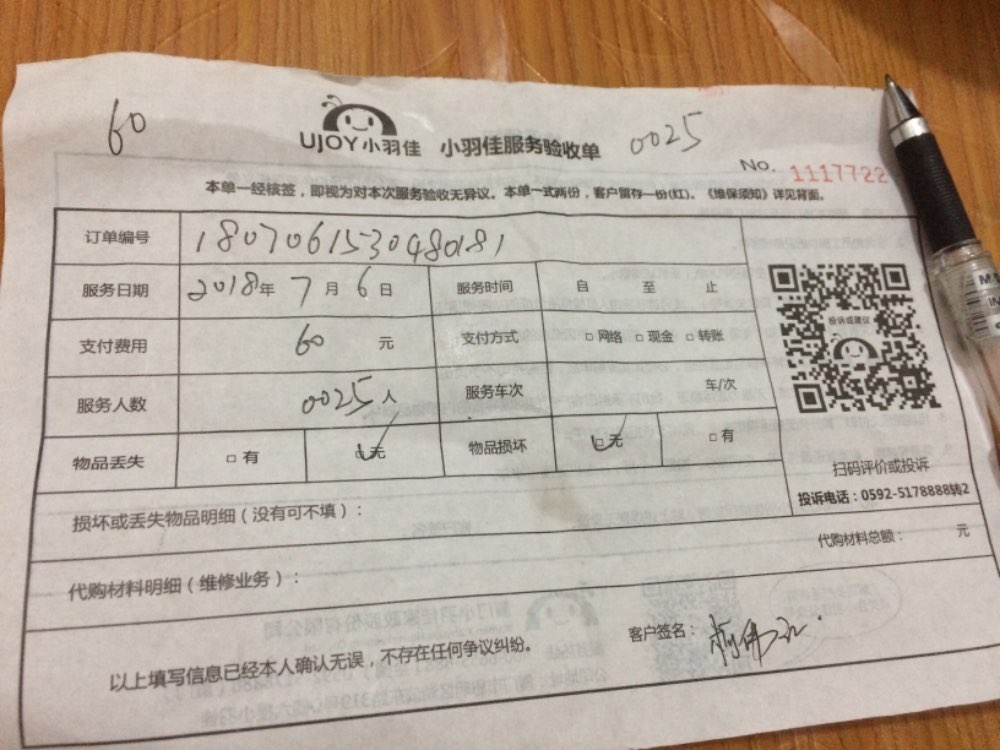 60
UJOY小羽佳 小羽佳服务验收单 0025
No. 1117722
本单一经核签，即视为对本次服务验收无异议。本单一式两份，客户留存一份(红)。《维保须知》详见背面。
订单编号 1807061530480181
服务日期 2018年 7月 6日 服务时间 自 至 止
支付费用 60 元 支付方式 □网络 □现金 □转账
服务人数 0025人 服务车次 车/次
物品丢失 □有 □无 物品损坏 □无 □有
投诉或建议
扫码评价或投诉
投诉电话：0592-5178888转2
损坏或丢失物品明细（没有可不填）：
代购材料总额： 元
代购材料明细（维修业务）：
以上填写信息已经本人确认无误，不存在任何争议纠纷。
客户签名：